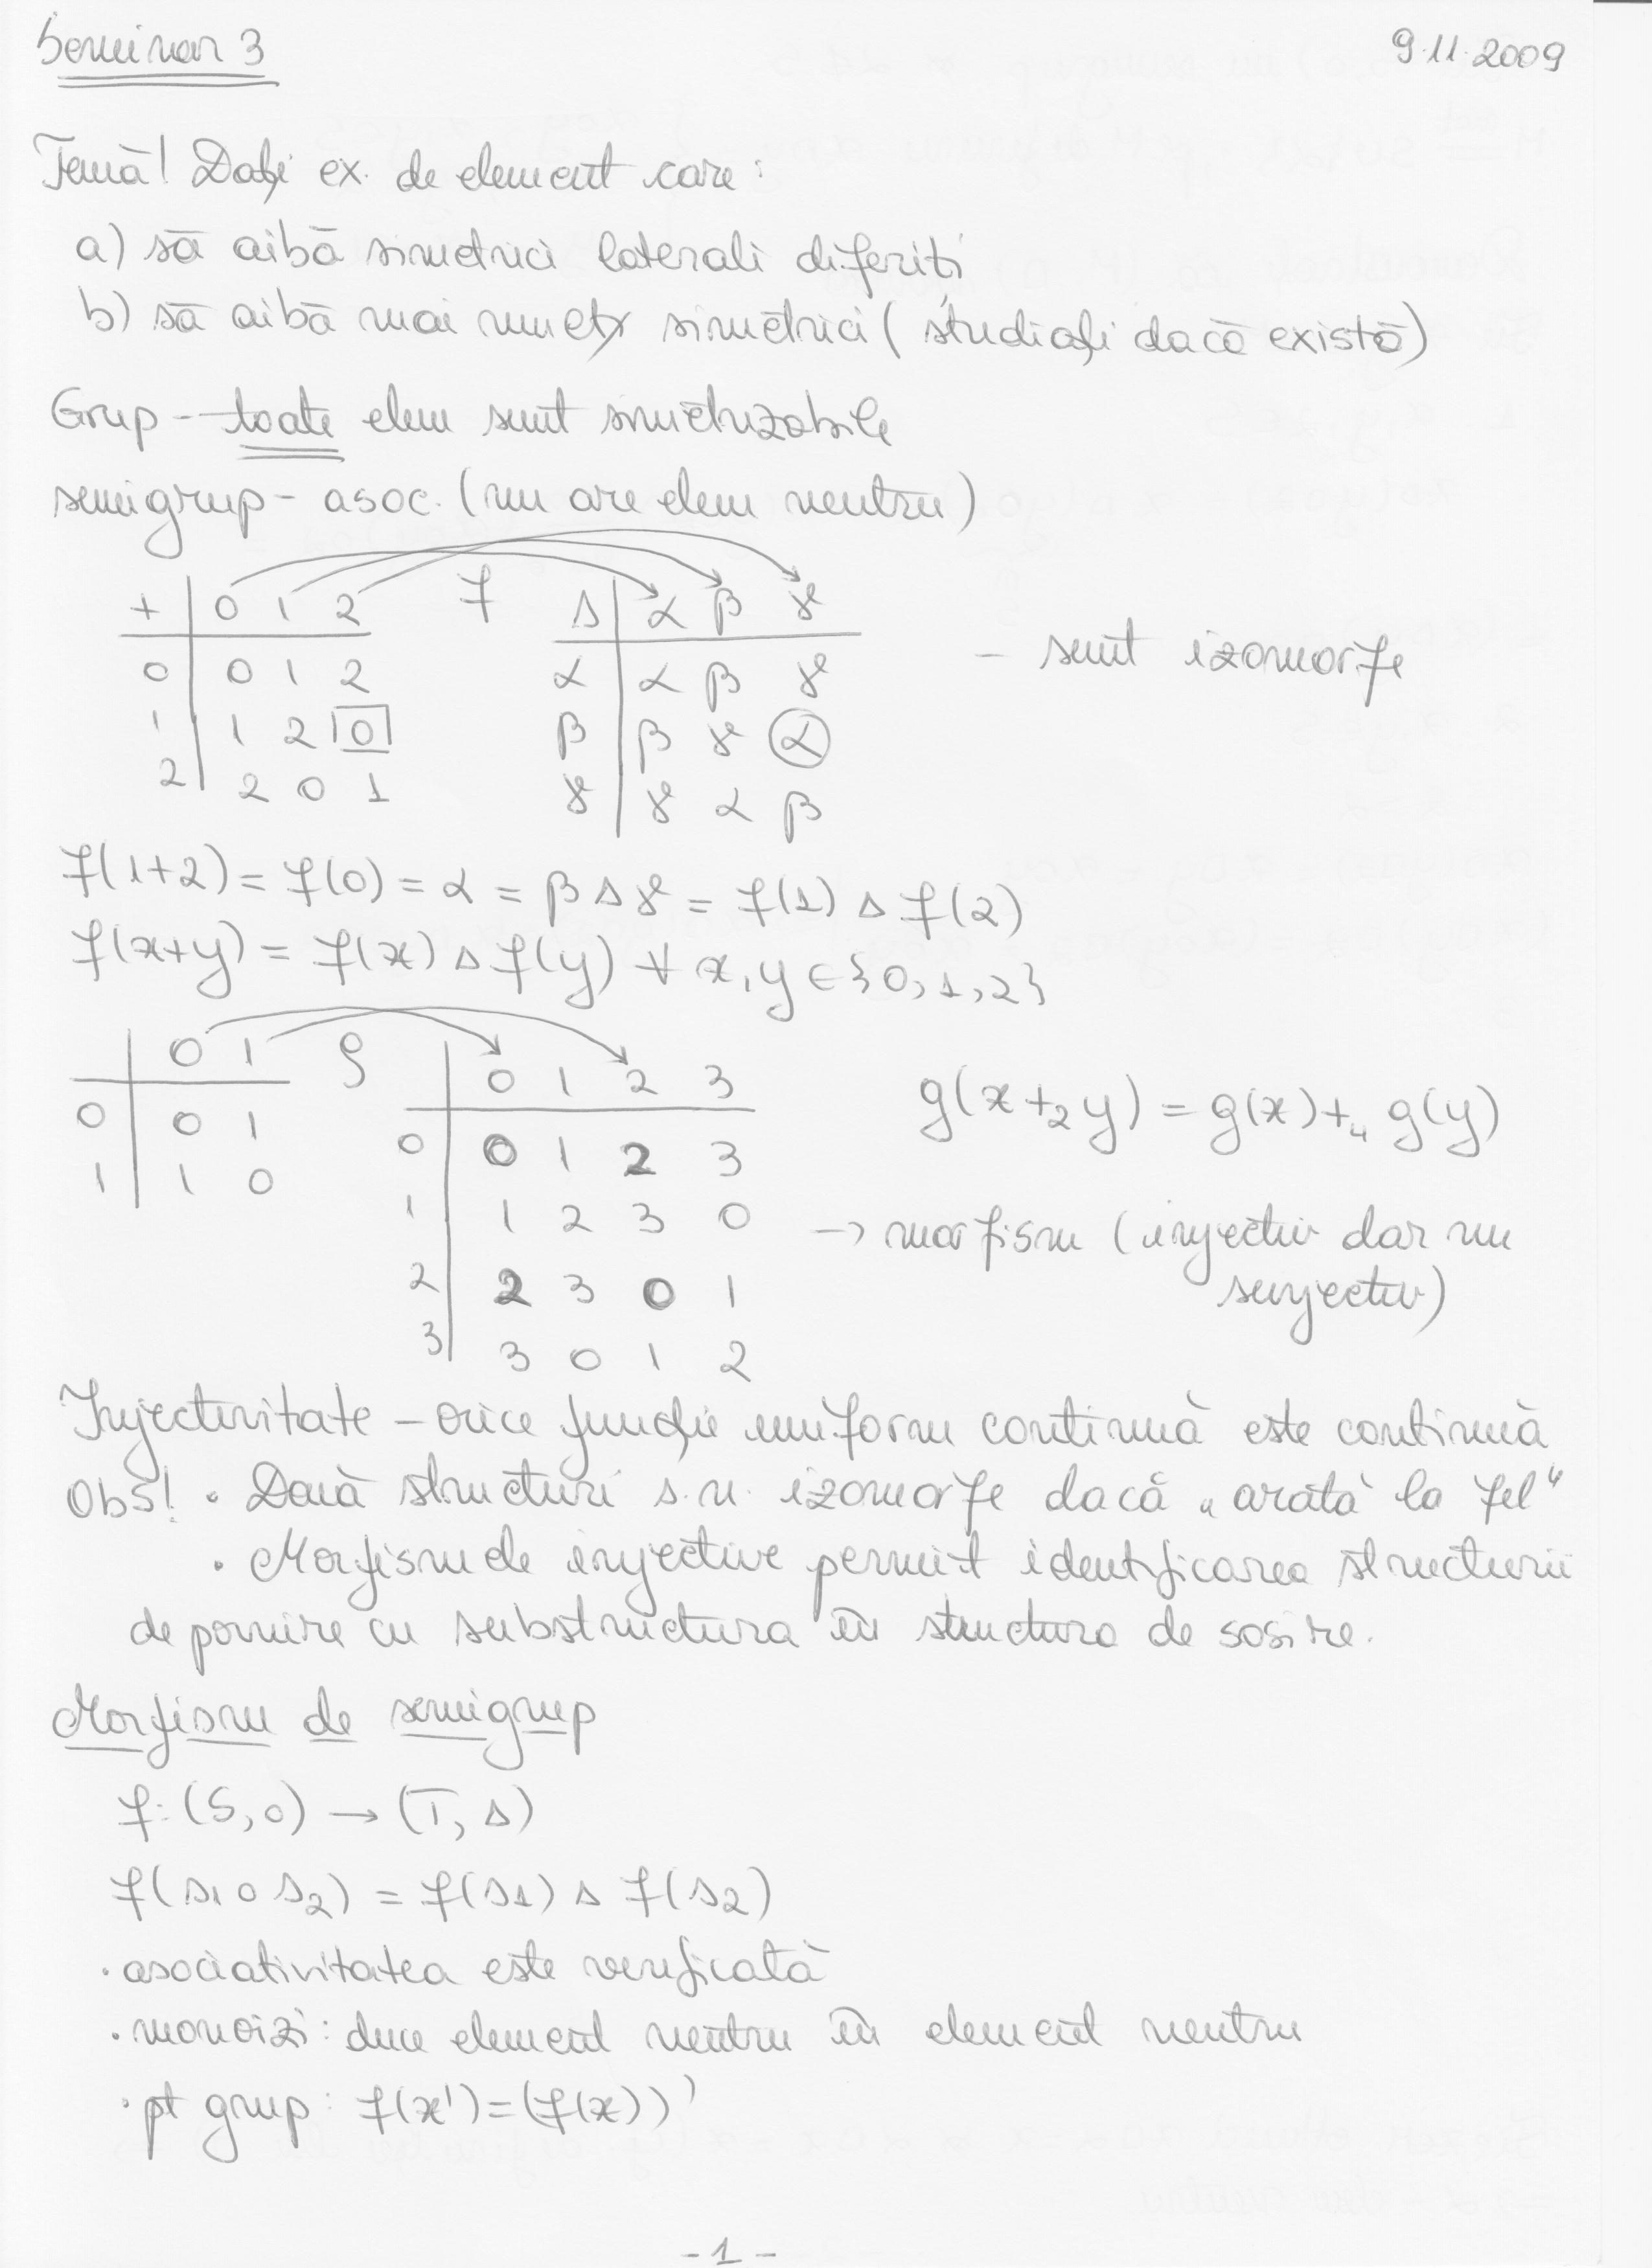 Seminar 3
9.11.2009
Temă! Dați ex. de element care:
a) să aibă simetrici laterali diferiți
b) să aibă mai mulți simetrici (studiați dacă există)
Grup - toate elem sunt simetrizabile
semigrup - asoc. (nu are elem neutru)
+ | 0 1 2 f Δ | α β γ
0 | 0 1 2 α | α β γ - sunt izomorfe
1 | 1 2 0 β | β γ α
2 | 2 0 1 γ | γ α β
f(1+2) = f(0) = α = β Δ γ = f(1) Δ f(2)
f(x+y) = f(x) Δ f(y) ∀ x,y ∈ {0,1,2}
| 0 1 g | 0 1 2 3
0 | 0 1 0 | 0 1 2 3 g(x +₂ y) = g(x) +₄ g(y)
1 | 1 0 1 | 1 2 3 0 → morfism (injectiv dar nu
2 | 2 3 0 1 surjectiv)
3 | 3 0 1 2
Injectivitate - orice funcție uniform continuă este continuă
Obs! • Două structuri s.n. izomorfe dacă „arată la fel"
• Morfismele injective permit identificarea structurii
de pornire cu substructura în structura de sosire.
Morfism de semigrup
f: (S, o) → (T, Δ)
f(s₁ o s₂) = f(s₁) Δ f(s₂)
• asociativitatea este verificată
• monoizi: duce element neutru în element neutru
• pt grup: f(x') = (f(x))'
- 1 -